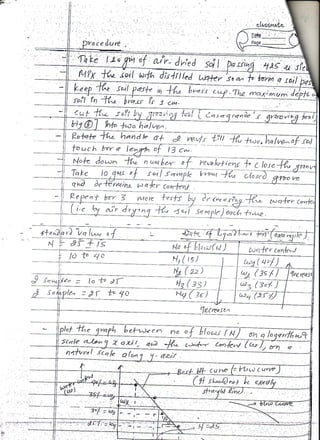 classmate
Date
Page
procedure
- Take 120 gm of air-dried soil passing 425 u sie
Mix the soil with distilled water so as to form a soil pas
- keep the soil paste in the brass cup. The maximum depth o
soil in the brass is 1 cm.
- Cut the soil by grooving tool [Casagrande's grooving tool
into two halves.
- Rotate the handle at 2 rev/s till the two halves of soil
touch for a length of 13 cm
- Note down the number of revolutions to close the groov
- Take 10 gms of soil sample from the closed groove
and determine water content
- Repeat for 3 more tests by decreasing the water conten
(i.e by air drying the soil sample) each time.
standard value of
N = 25 ± 15
= 10 to 40
2 samples = 10 to 25
2 samples = 25 to 40
No of blows (N)
water content
N1 (15)
w1 (40%)
N2 (22)
w2 (35%)
N3 (33)
w3 (30%)
N4 (36)
w4 (25%)
Increases
- plot the graph between no of blows (N) on a logarithmi
scale along x axis, and the water content (w), on a
natural scale along y-axis
Best fit curve (= flow curve)
(It should not be exactly
straight line)
water content
(w)
flow curve
N=25